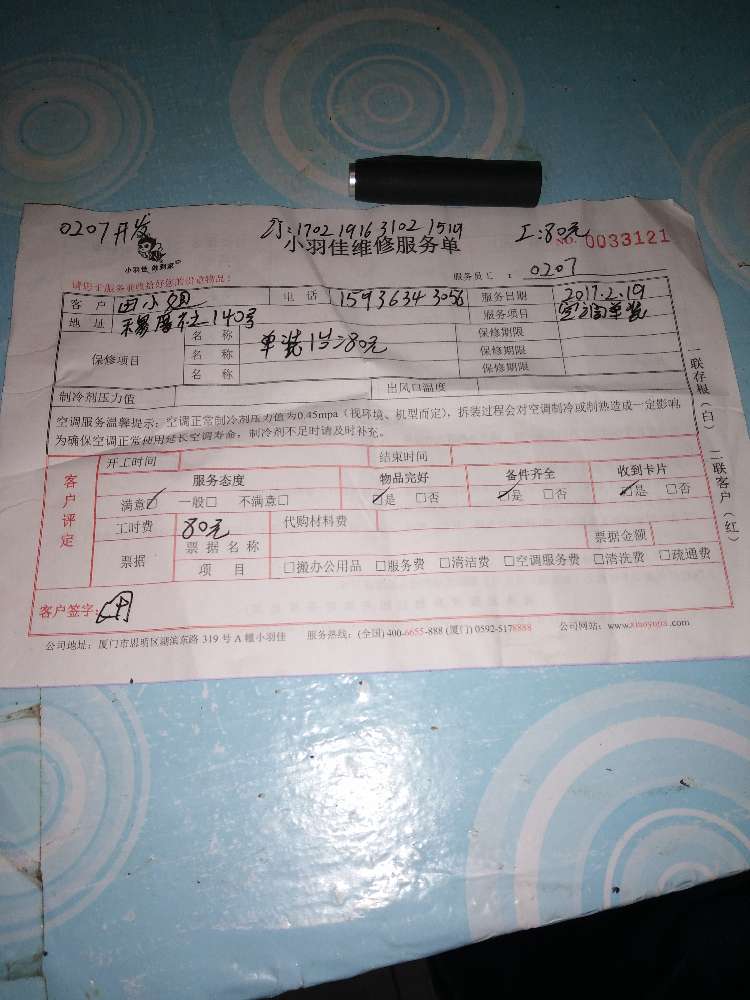 0207开发 订:1702191631021519 工:80元
小羽佳 做到家
小羽佳维修服务单 NO. 0033121
服务员工: 0207
请您于服务前收拾好您的贵重物品:
客户 田小姐 电话 15936343056 服务日期 2017.2.19
地址 140号 服务项目 空调单装
保修项目 名称 单装1台:80元 保修期限
名称 保修期限
名称 保修期限
制冷剂压力值 出风口温度
空调服务温馨提示:空调正常制冷剂压力值为0.45mpa(视环境、机型而定),拆装过程会对空调制冷或制热造成一定影响
为确保空调正常使用延长空调寿命,制冷剂不足时请及时补充。
客户评定
开工时间 结束时间
服务态度 物品完好 备件齐全 收到卡片
满意☑ 一般□ 不满意□ ☑是 □否 ☑是 □否 ☑是 □否
工时费 80元 代购材料费
票据 票据名称 票据金额
项目 □搬办公用品 □服务费 □清洁费 □空调服务费 □清洗费 □疏通费
客户签字:
公司地址:厦门市思明区湖滨东路319号A幢小羽佳 服务热线:(全国)400-6655-888 (厦门)0592-5178888 公司网站:www.xiaoyujia.com
一联存根(白) 二联客户(红)